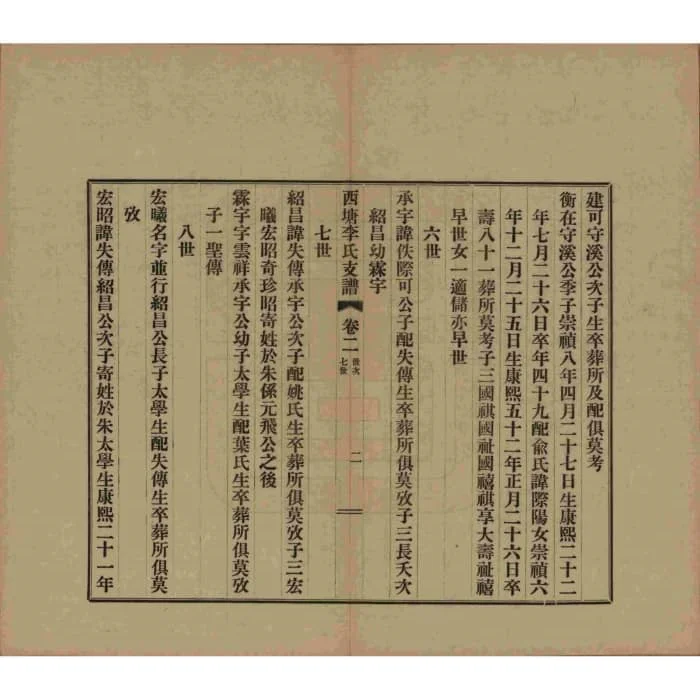 建可守溪公次子生卒葬所及配俱莫考
衡在守溪公季子崇禎八年四月二十七日生康熙二十二
年七月二十六日卒年四十九配俞氏諱際陽女崇禎六
年十二月二十五日生康熙五十二年正月二十六日卒
壽八十一葬所莫考子三國祺國祉國禧祺享大壽祉禧
早世女一適儲亦早世
六世
承宇諱佚際可公子配失傳生卒葬所俱莫攷子三長夭次
紹昌幼霖宇
西塘李氏支譜
卷二
世次
七世
二
七世
紹昌諱失傳承宇公次子配姚氏生卒葬所俱莫攷子三宏
曦宏昭奇珍昭寄姓於朱係元飛公之後
霖宇字雲祥承宇公幼子太學生配葉氏生卒葬所俱莫攷
子一聖傳
八世
宏曦名字並行紹昌公長子太學生配失傳生卒葬所俱莫
攷
宏昭諱失傳紹昌公次子寄姓於朱太學生康熙二十一年